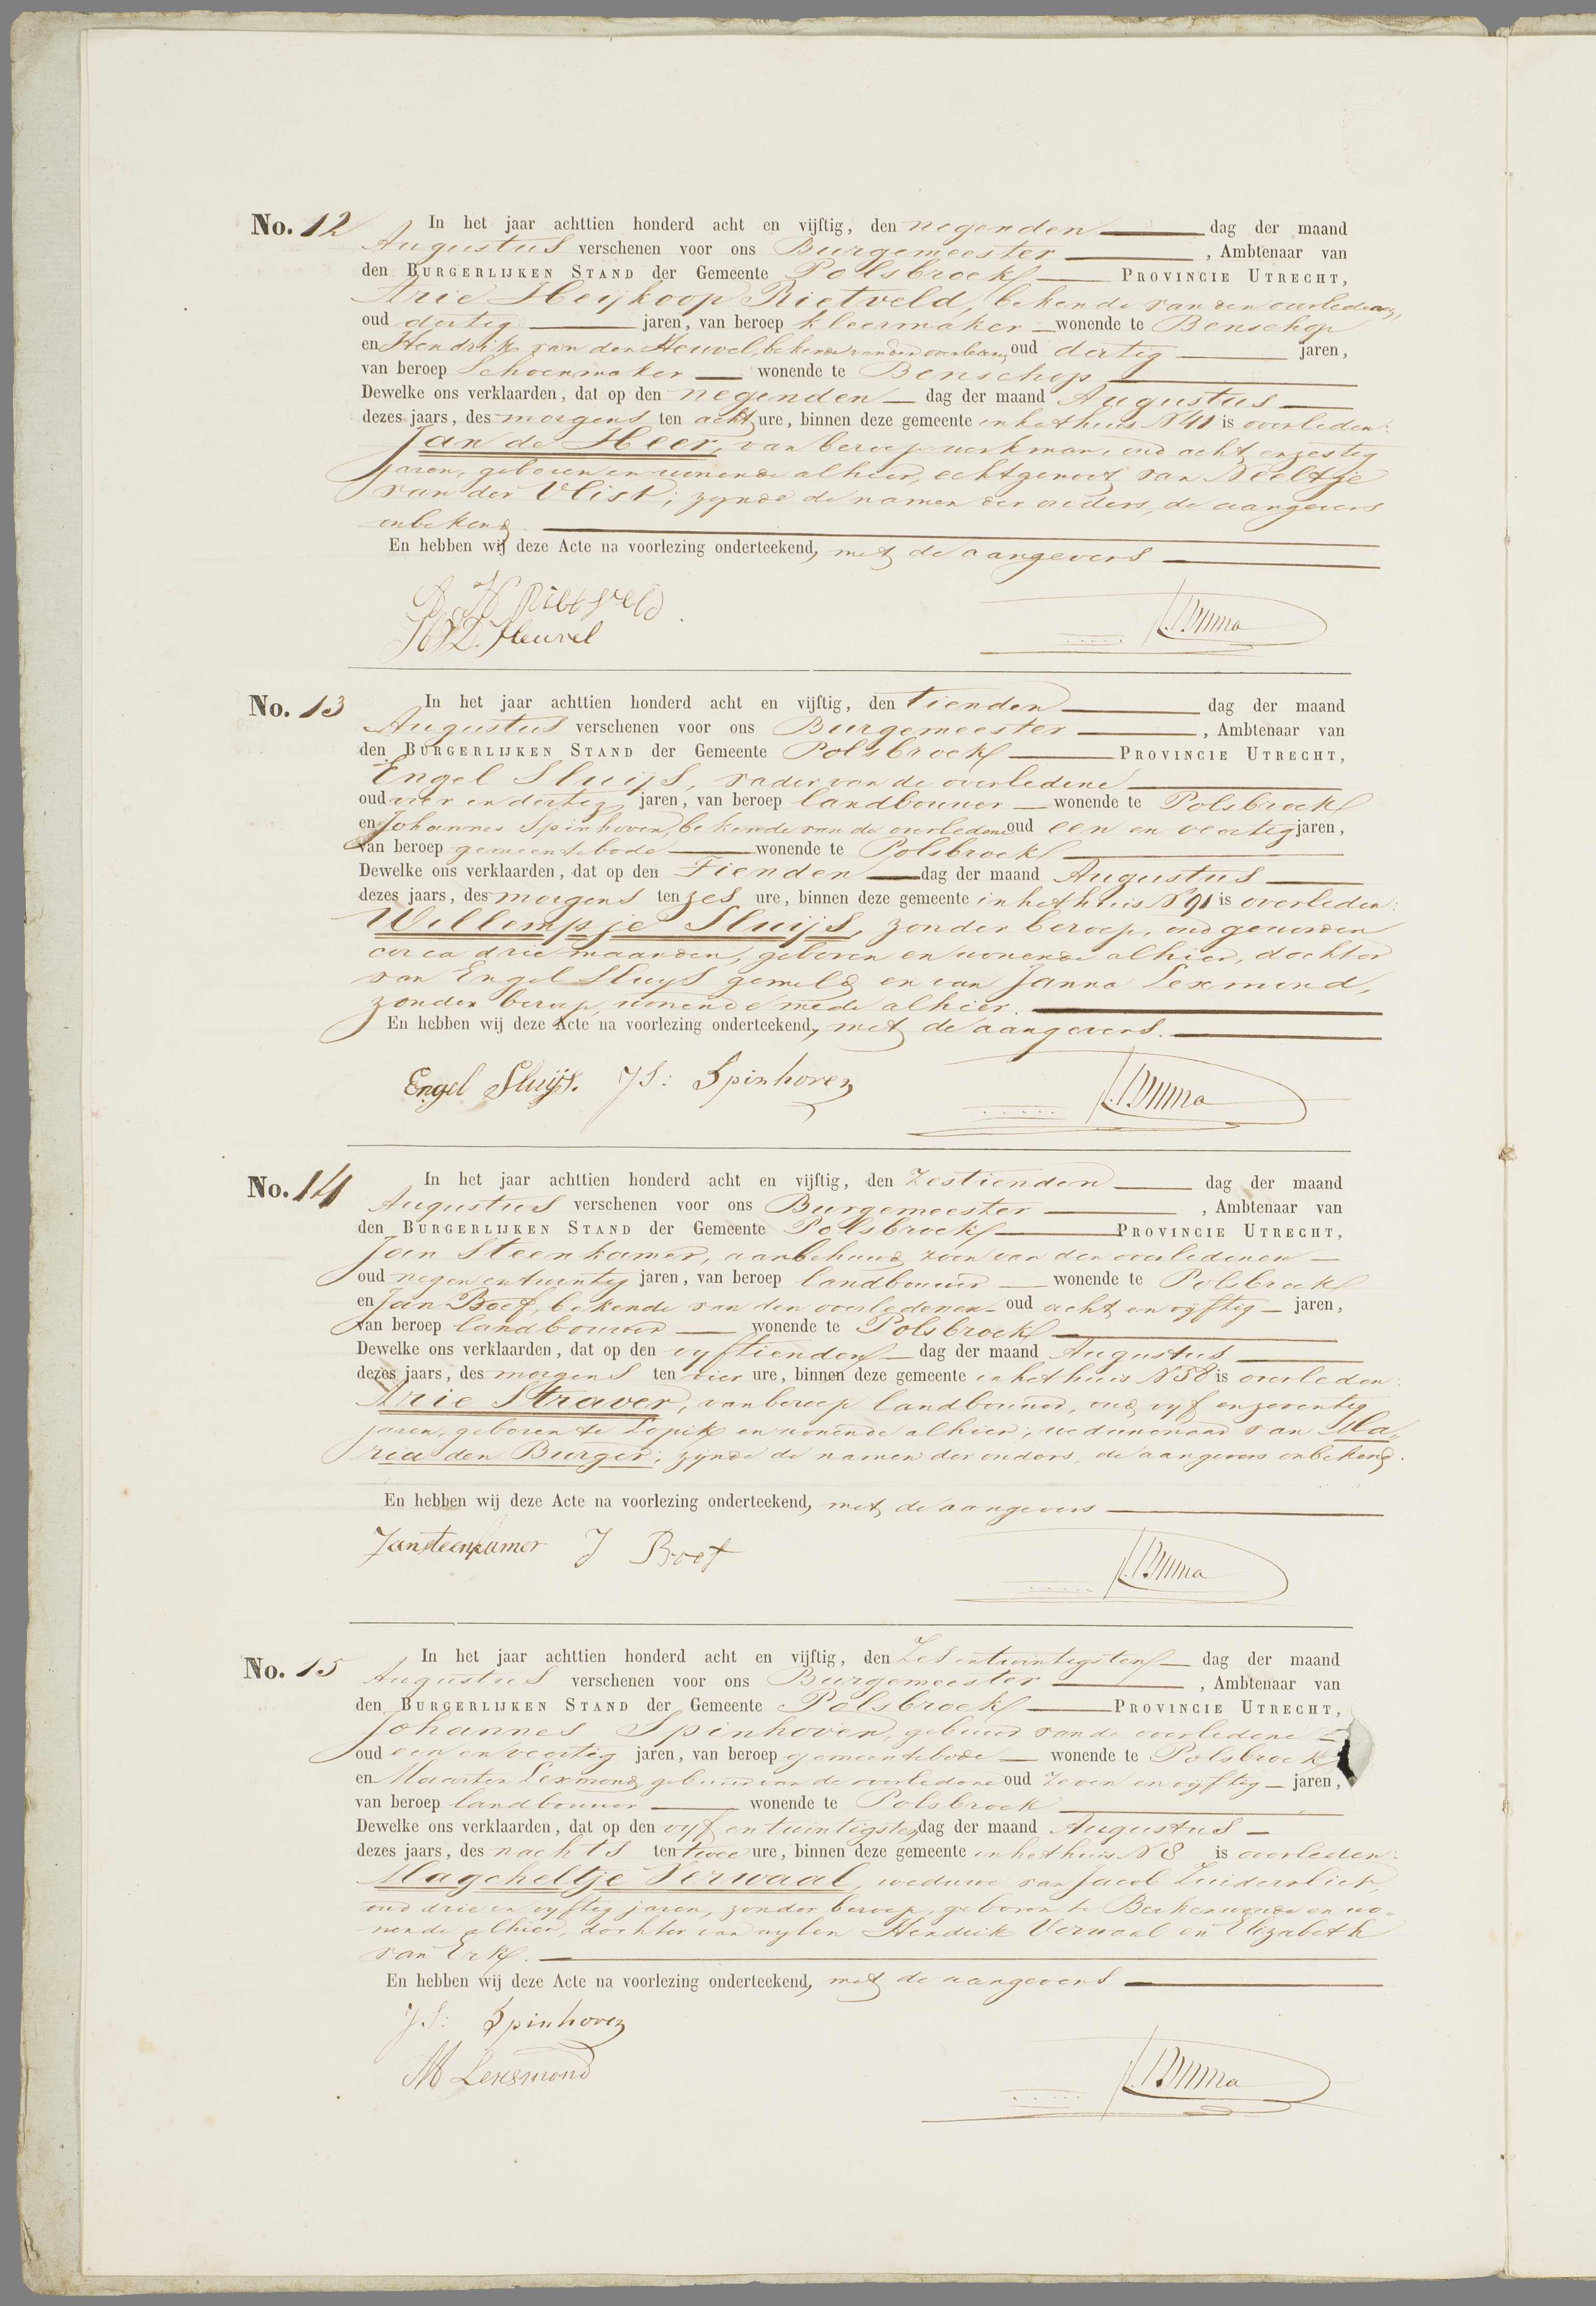 No. 12 In het jaar achttien honderd acht en vijftig, den negenden dag der maand
Augustus verschenen voor ons Burgemeester, Ambtenaar van
den BURGERLIJKEN STAND der Gemeente Polsbroek PROVINCIE UTRECHT,
Arie Heijkoop Rietveld, bekende van den overledene,
oud dertig jaren, van beroep kleermaker wonende te Benschop
en Hendrik van den Heuvel, bekende van den overledene, oud dertig jaren,
van beroep Schoenmaker wonende te Benschop
Dewelke ons verklaarden, dat op den negenden dag der maand Augustus
dezes jaars, des morgens ten acht ure, binnen deze gemeente in het huis N 41 is overleden:
Jan de Heer, van beroep werkman, oud acht en zestig
jaren, geboren en wonende alhier, echtgenoot van Neeltje
van der Vlist; zynde de namen der ouders, de aangevers
onbekend.
En hebben wij deze Acte na voorlezing onderteekend, met de aangevers
A H Rietveld
H V D Heuvel
Buma
No. 13 In het jaar achttien honderd acht en vijftig, den tienden dag der maand
Augustus verschenen voor ons Burgemeester, Ambtenaar van
den BURGERLIJKEN STAND der Gemeente Polsbroek PROVINCIE UTRECHT,
Engel Sluijs, vader van de overledene
oud vier en dertig jaren, van beroep landbouwer wonende te Polsbroek
en Johannes Spinhoven, bekende van de overledene oud een en veertig jaren,
van beroep gemeentebode wonende te Polsbroek
Dewelke ons verklaarden, dat op den Tienden dag der maand Augustus
dezes jaars, des morgens ten zes ure, binnen deze gemeente in het huis N 91 is overleden:
Willempje Sluijs, zonder beroep, oud geworden
circa drie maanden, geboren en wonende alhier, dochter
van Engel Sluys gemeld en van Janna Lexmond,
zonder beroep, wonende mede alhier.
En hebben wij deze Acte na voorlezing onderteekend, met de aangevers.
Engel Sluijs. JS: Spinhoven
Buma
No. 14 In het jaar achttien honderd acht en vijftig, den Zestienden dag der maand
Augustus verschenen voor ons Burgemeester, Ambtenaar van
den BURGERLIJKEN STAND der Gemeente Polsbroek PROVINCIE UTRECHT,
Jan Steenkamer, aanbehuwd zoon van den overledenen
oud negen en twintig jaren, van beroep landbouwer wonende te Polsbroek
en Jan Boef, bekende van den overledenen oud acht en vyftig jaren,
van beroep landbouwer wonende te Polsbroek
Dewelke ons verklaarden, dat op den vyftienden dag der maand Augustus
dezes jaars, des morgens ten vier ure, binnen deze gemeente in het huis N 58 is overleden:
Arie Straver, van beroep landbouwer, oud vyf en zeventig
jaren, geboren te Lopik en wonende alhier, weduwenaar van Ma,,
ria den Burger; zijnde de namen der ouders, de aangevers onbekend.
En hebben wij deze Acte na voorlezing onderteekend, met de aangevers
Jan steenkamer J Boef
Buma
No. 15 In het jaar achttien honderd acht en vijftig, den Zes entwintigsten dag der maand
Augustus verschenen voor ons Burgemeester, Ambtenaar van
den BURGERLIJKEN STAND der Gemeente Polsbroek PROVINCIE UTRECHT,
Johannes Spinhoven, gebuur van de overledene
oud een en veertig jaren, van beroep gemeentebode wonende te Polsbroek
en Maarten Lexmond, gebuur van de overledene oud zeven en vyftig jaren,
van beroep landbouwer wonende te Polsbroek
Dewelke ons verklaarden, dat op den vyf en twintigsten dag der maand Augustus
dezes jaars, des nachts ten twee ure, binnen deze gemeente in het huis N 8 is overleden:
Magcheltje Verwaal, weduwe van Jacob Zuidervliet,
oud drie en vyftig jaren, zonder beroep, geboren te Berkenwoude en wo-
nende alhier, dochter van wylen Hendrik Verwaal en Elizabeth
van Erk.
En hebben wij deze Acte na voorlezing onderteekend, met de aangevers
JS: Spinhoven
M Lexsmond
Buma